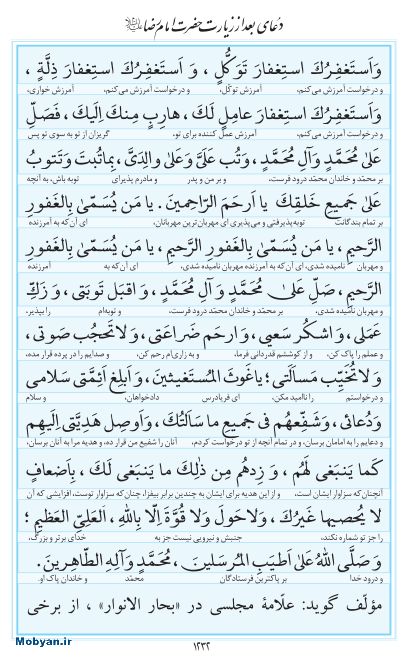 دعای بعد از زیارت حضرت امام رضا علیه السلام
وَاَستَغفِرُكَ استِغفارَ تَوَكُّلٍ ، وَ اَستَغفِرُكَ استِغفارَ ذِلَّةٍ ،
و درخواست آمرزش می‌کنم، آمرزش توکّل، و درخواست آمرزش می‌کنم، آمرزش خواری،
وَاَستَغفِرُكَ استِغفارَ عامِلٍ لَكَ ، هارِبٍ مِنكَ اِلَيكَ ، فَصَلِّ
و درخواست آمرزش می‌کنم، آمرزش عمل کننده برای تو، گریزان از تو به سوی تو پس
عَلىٰ مُحَمَّدٍ وَآلِ مُحَمَّدٍ ، وَتُب عَلَيَّ وَعَلىٰ والِدَيَّ ، بِماتُبتَ وَتَتوبُ
بر محمّد و خاندان محمّد درود فرست، و بر من و پدر و مادرم پذیرای توبه باش، به آنچه
عَلىٰ جَميعِ خَلقِكَ يا اَرحَمَ الرّاحِمينَ . يا مَن يُسَمّىٰ بِالغَفورِ
بر تمام بندگانت توبه‌پذیرفتی و می‌پذیری ای مهربان‌ترین مهربانان، ای آن‌که به آمرزنده
الرَّحيمِ ، يا مَن يُسَمّىٰ بِالغَفورِ الرَّحيمِ ، يا مَن يُسَمّىٰ بِالغَفورِ
و مهربان نامیده شدی، ای آن‌که به آمرزنده مهربان نامیده شدی، ای آن‌که به آمرزنده
الرَّحيمِ ، صَلِّ عَلىٰ مُحَمَّدٍ وَآلِ مُحَمَّدٍ ، وَ اقبَل تَوبَتي ، وَ زَكِّ
و مهربان نامیده شدی، بر محمّد و خاندان محمّد درود فرست، و توبه‌ام را بپذیر،
عَمَلي ، وَاشكُر سَعيي ، وَارحَم ضَراعَتي ، وَلاتَحجُب صَوتي ،
و عملم را پاک کن، و از کوششم قدردانی فرما، و به زاری‌ام رحم کن، و صدایم را در پرده قرار مده،
وَلاتُخَيِّب مَسأَلَتي ؛ ياغَوثَ المُستَغيثينَ ، وَاَبلِغ اَئِمَّتي سَلامي
و درخواستم را ناامید مکن، ای فریادرس دادخواهان، و سلام
وَدُعائي ، وَشَفِّعهُم في جَميعِ ما سَأَلتُكَ ، وَاَوصِل هَدِيَّتي اِلَيهِم
و دعایم را به امامان برسان، و در تمام آنچه از تو درخواست کردم، آنان را شفیع من قرار ده، و هدیه مرا به آنان برسان،
كَما يَنبَغي لَهُم ، وَ زِدهُم مِن ذٰلِكَ ما يَنبَغي لَكَ ، بِاَضعافٍ
آنچنان که سزاوار ایشان است، و از این هدیه برای ایشان به چندین برابر بیفزا، چنان که سزاوار توست، افزایشی که آن
لا يُحصيها غَيرُكَ ، وَلاحَولَ وَلا قُوَّةَ اِلّا بِاللهِ ، العَلِيِّ العَظيمِ ؛
را جز تو شماره نکند، جنبش و نیرویی نیست جز به خدای برتر و بزرگ،
وَ صَلَّى اللهُ عَلىٰ اَطيَبِ المُرسَلينَ ، مُحَمَّدٍ وَآلِهِ الطّاهِرينَ .
و درود خدا بر پاکترین فرستادگان محمّد و خاندان پاک او.
مؤلّف گوید: علّامهٔ مجلسی در «بحار الانوار» ، از برخی
Mobyan.ir
۱۲۳۲